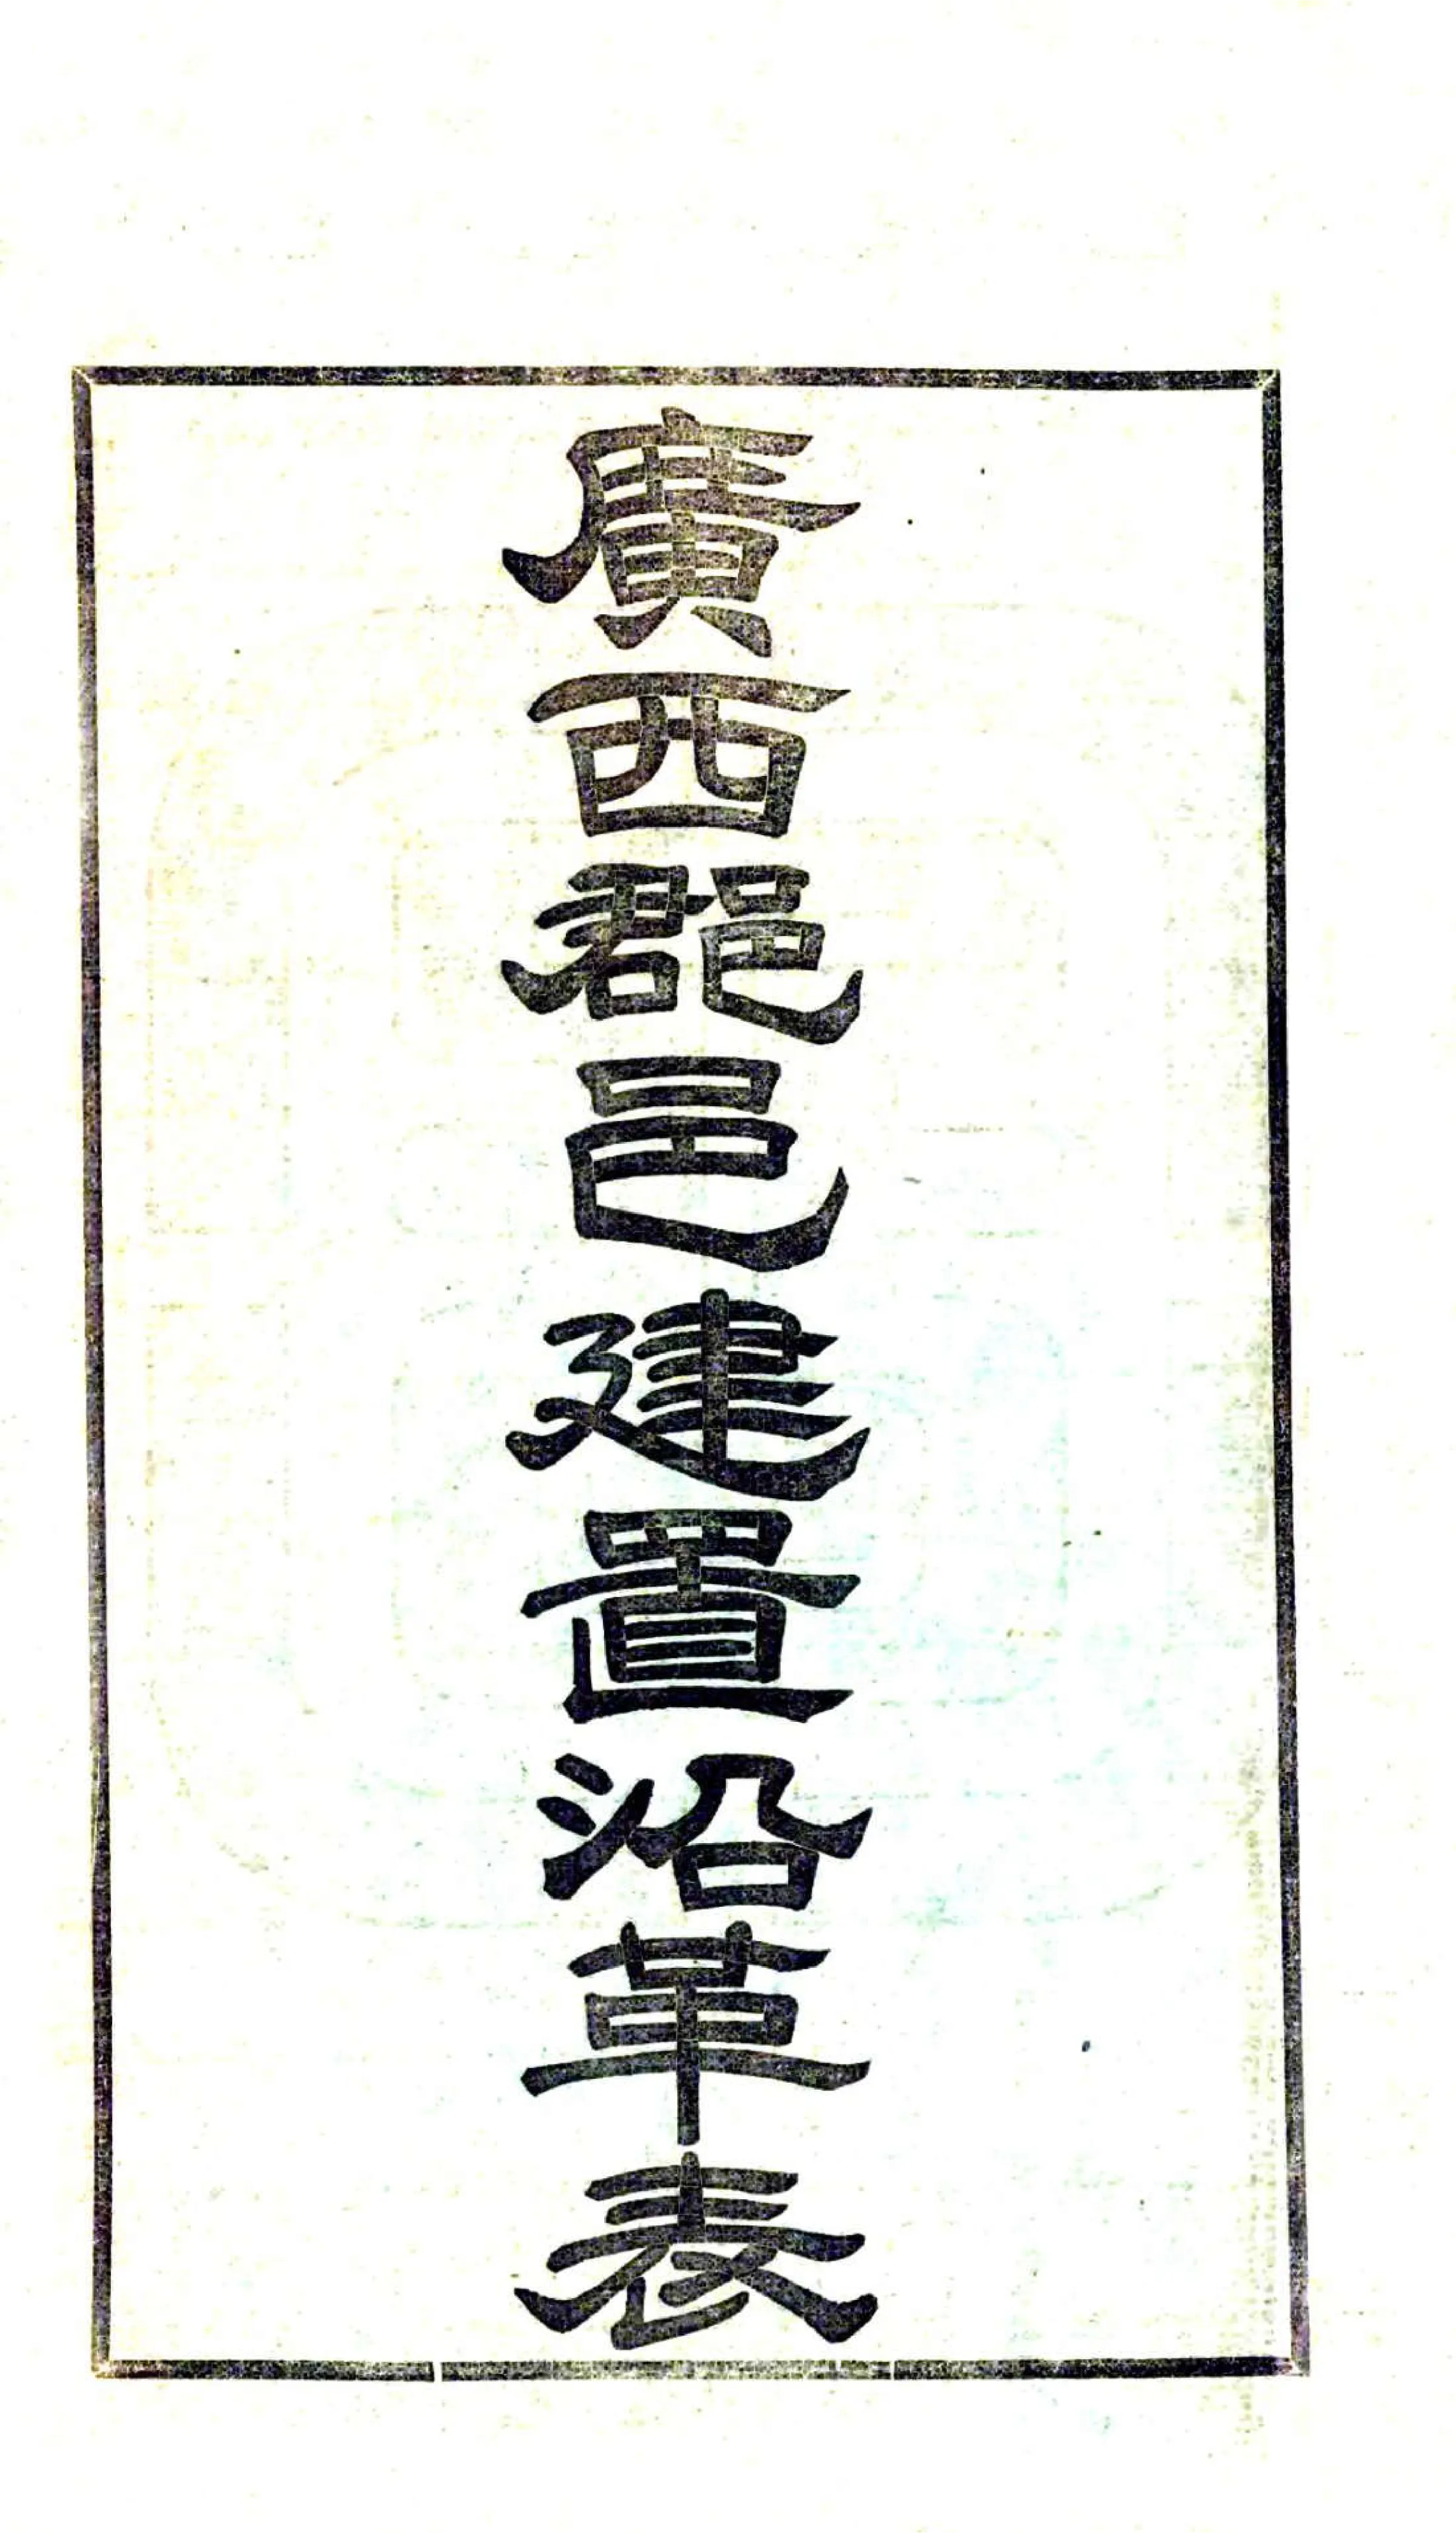 廣西郡邑建置沿革表